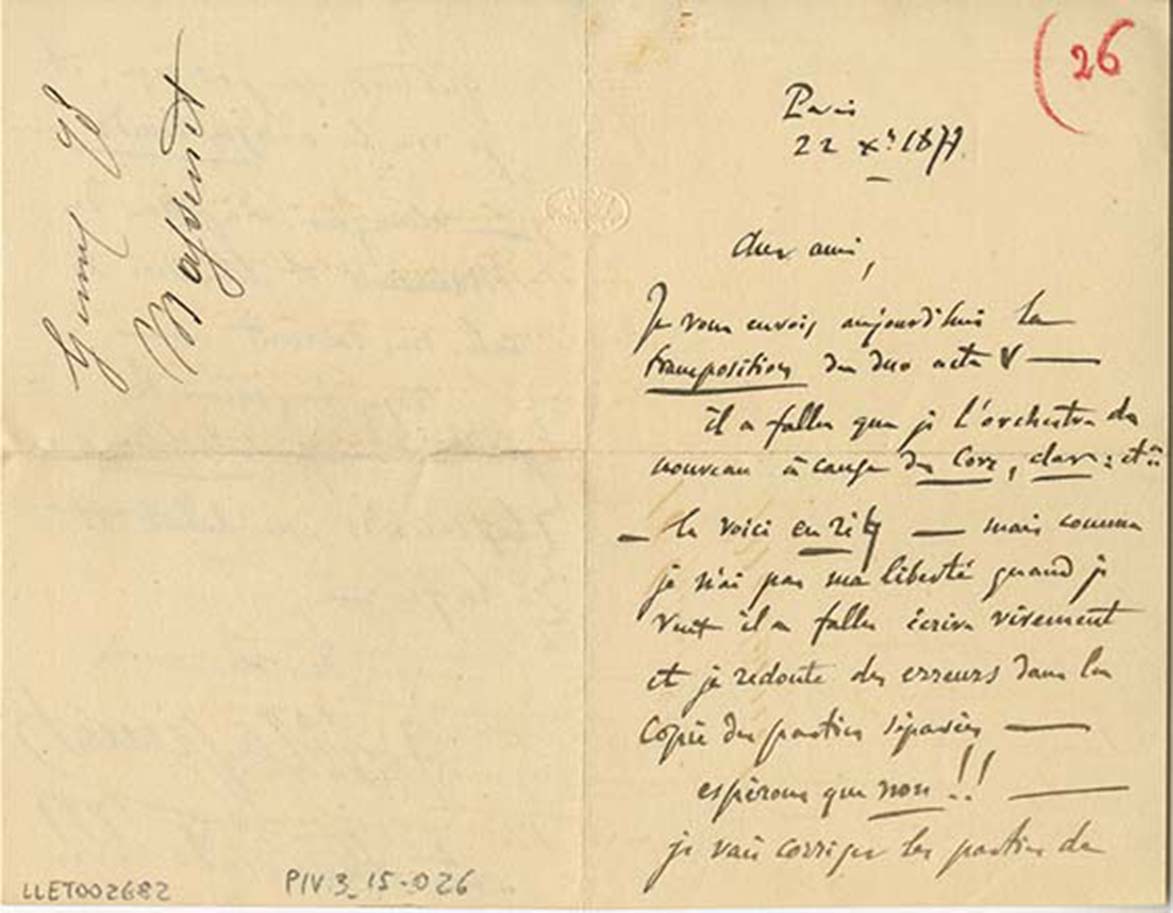 Giunse 98
Massenet
(26
Paris
22 Xbre 1877
Cher ami,
Je vous envoie aujourd'hui la
transposition du duo acte V —
il a fallu que je l'orchestre de
nouveau à cause des Cors, clar: et
— le voici en si — mais comme
je n'ai pas ma liberté quand je
veux il a fallu écrire vivement
et je redoute des erreurs dans la
Copie des parties séparées —
espérons que non !! —
je vais corriger les parties de
LLET002682
PIV 3_15-026